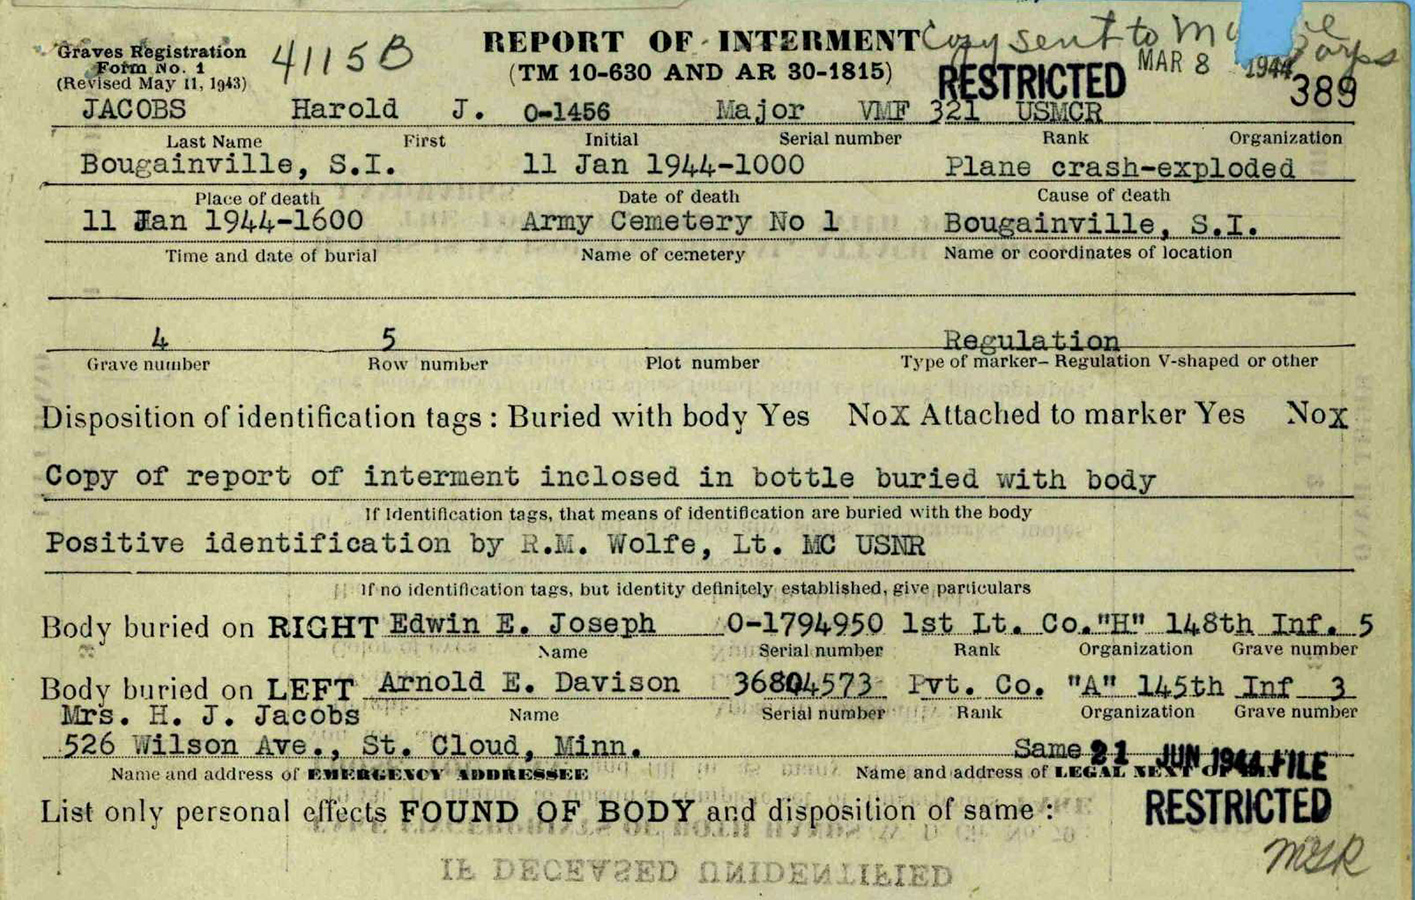 Graves Registration
Form No. 1
(Revised May 11, 1943)
4115B
REPORT OF INTERMENT
(TM 10-630 AND AR 30-1815)
Copy sent to
RESTRICTED
MAR 8 1944
389
JACOBS Harold J. O-1456 Major VMF 321 USMCR
Last Name First Initial Serial number Rank Organization
Bougainville, S.I. 11 Jan 1944-1000 Plane crash-exploded
Place of death Date of death Cause of death
11 Jan 1944-1600 Army Cemetery No 1 Bougainville, S.I.
Time and date of burial Name of cemetery Name or coordinates of location
4 5 Regulation
Grave number Row number Plot number Type of marker— Regulation V-shaped or other
Disposition of identification tags : Buried with body Yes NoX Attached to marker Yes Nox
Copy of report of interment inclosed in bottle buried with body
If Identification tags, that means of identification are buried with the body
Positive identification by R.M. Wolfe, Lt. MC USNR
If no identification tags, but identity definitely established, give particulars
Body buried on RIGHT Edwin E. Joseph O-1794950 1st Lt. Co."H" 148th Inf. 5
Name Serial number Rank Organization Grave number
Body buried on LEFT Arnold E. Davison 36804573 Pvt. Co. "A" 145th Inf 3
Mrs. H. J. Jacobs
Name Serial number Rank Organization Grave number
526 Wilson Ave., St. Cloud, Minn. Same
21 JUN 1944 FILE
Name and address of EMERGENCY ADDRESSEE Name and address of LEGAL NEXT OF
List only personal effects FOUND OF BODY and disposition of same :
RESTRICTED
IF DECEASED UNIDENTIFIED